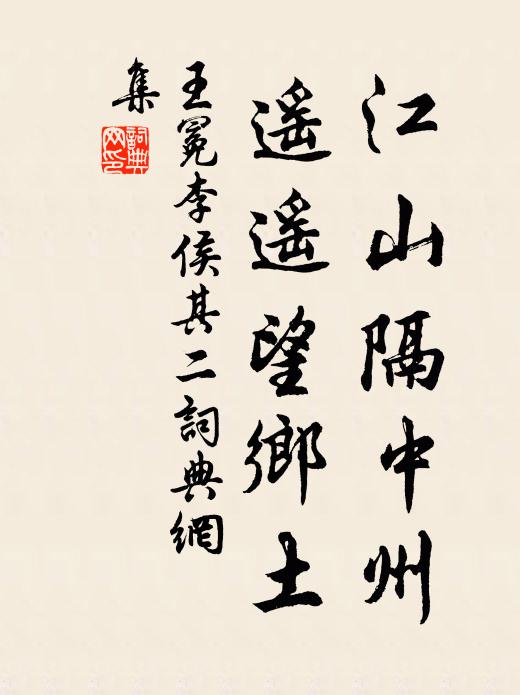 江山隔中州
遥遥望鄉土
王冕李侯其二詞典網
集
詞典網印